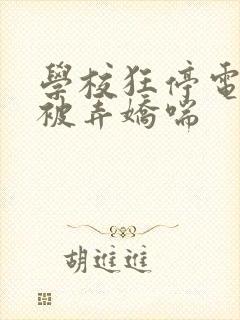 學校狂停電
被弄嬌喘
胡進進